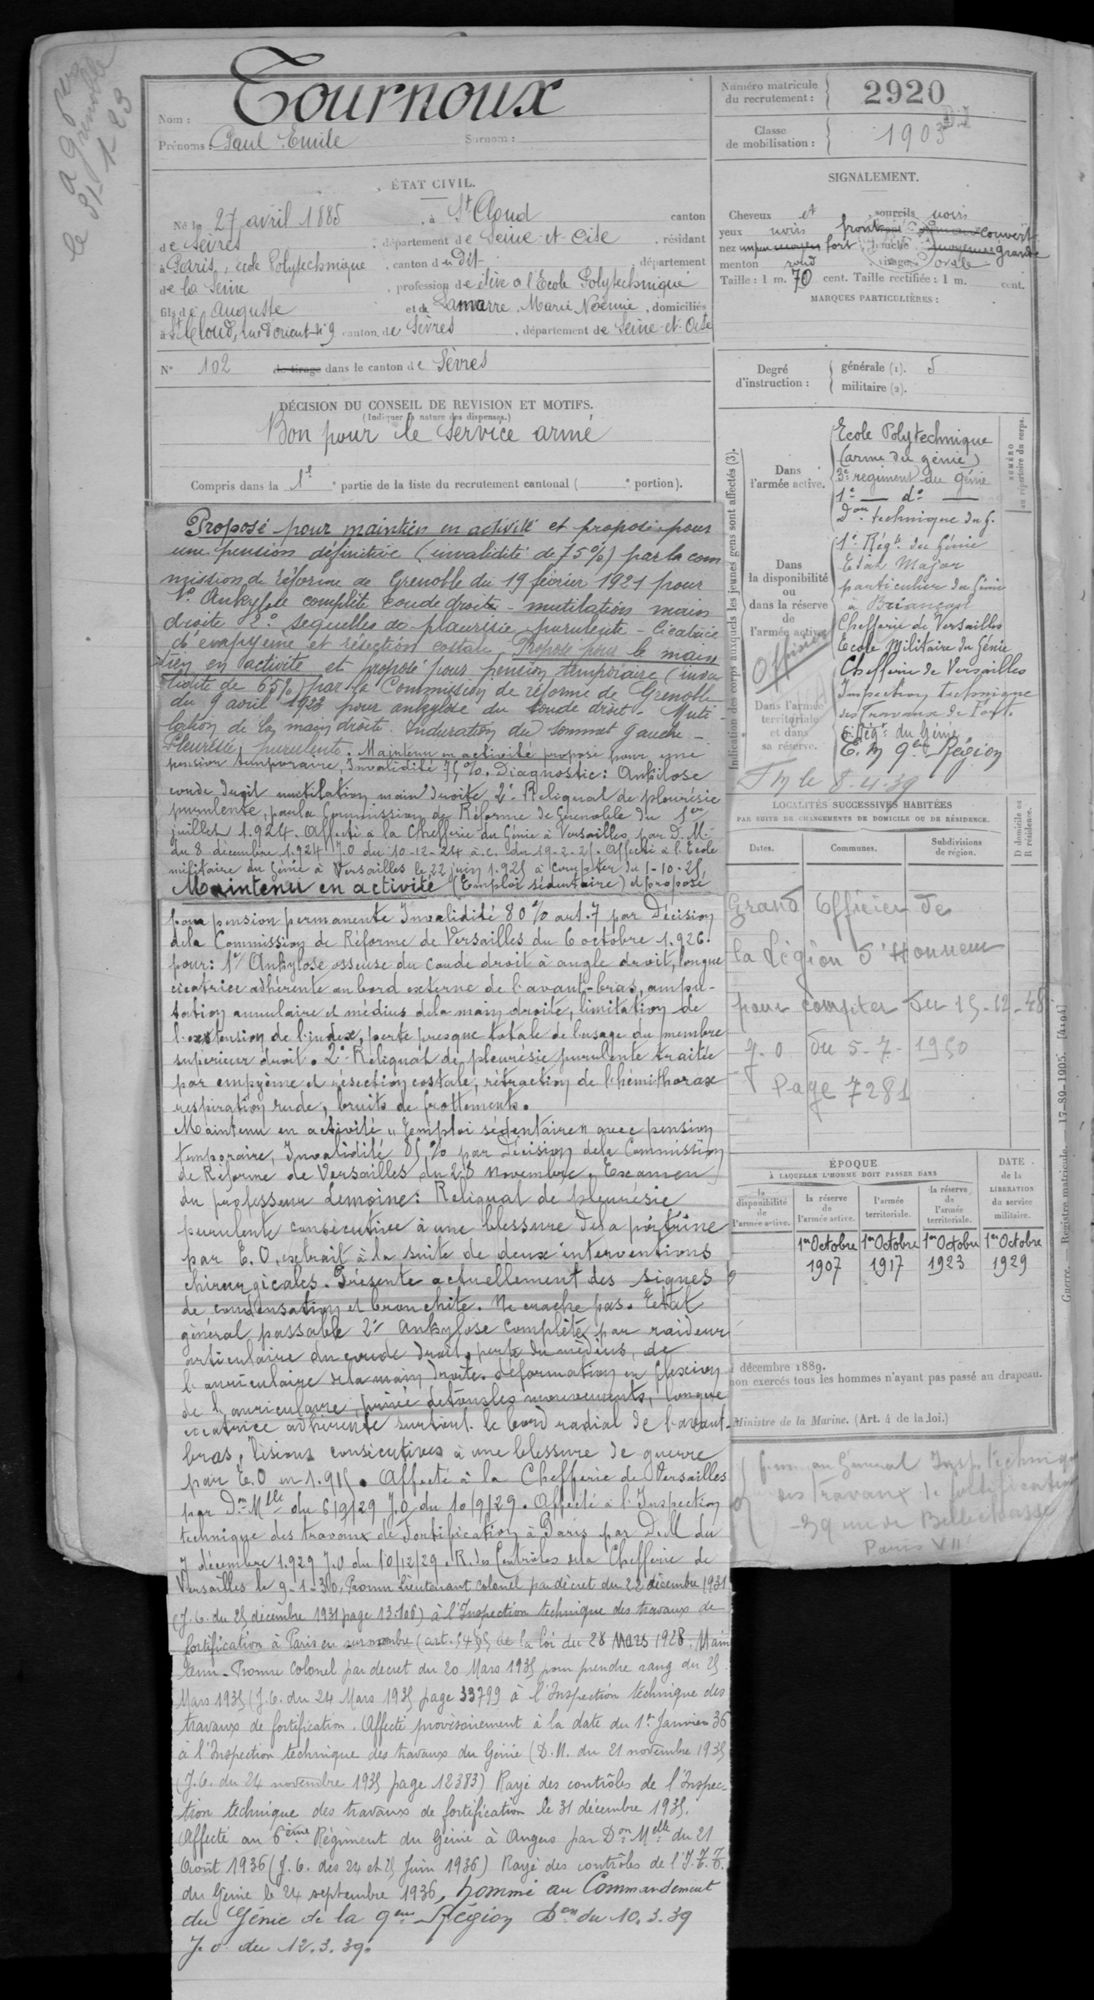 à Grenoble
le 31-1-23
Nom : Tournoux
Prénoms : Paul Emile Surnom :
Numéro matricule du recrutement : 2920
Classe de mobilisation : 1903
ÉTAT CIVIL.
Né le 27 avril 1885, à St Cloud canton
de Sèvres, département de Seine-et-Oise, résidant
à Paris, école Polytechnique, canton du dit, département
de la Seine, profession de élève à l'Ecole Polytechnique
fils de Auguste et de Lamarre, Marie Noémie, domiciliés
à St Cloud, rue d'orient n°9 canton de Sèvres, département de Seine-et-Oise
N° 102 de tirage dans le canton de Sèvres
DÉCISION DU CONSEIL DE REVISION ET MOTIFS.
(Indiquer la nature des dispenses.)
Bon pour le service armé
Compris dans la 1e partie de la liste du recrutement cantonal ( e portion).
SIGNALEMENT.
Cheveux et sourcils noirs
yeux noirs front couvert
nez moyen fort bouche moyenne grande
menton rond visage ovale
Taille : 1 m. 70 cent. Taille rectifiée : 1 m. cent.
MARQUES PARTICULIÈRES :
Degré d'instruction : générale (1). 5
militaire (2).
Indication des corps auxquels les jeunes gens sont affectés (3).
NUMÉRO
au répertoire du corps.
Dans l'armée active.
Ecole Polytechnique
(arme du génie)
3e regiment du génie
1e — do —
Don technique du G.
Dans la disponibilité ou dans la réserve de l'armée active
1e Régt du Génie
Etat Major
particulier du Génie
à Briançon
Chefferie de Versailles
Ecole Militaire du Génie
Chefferie de Versailles
Officier
Dans l'armée territoriale et dans sa réserve.
Inspection technique
des Travaux de Fort.
6e Régt du Génie
E. M 9e Région
8-4-39
LOCALITÉS SUCCESSIVES HABITÉES
PAR SUITE DE CHANGEMENTS DE DOMICILE OU DE RÉSIDENCE.
Dates. Communes. Subdivisions de région. D domicile ou R résidence.
Grand Officier de
la Légion d'Honneur
pour compter du 15-12-48
J.O du 5-7-1950
Page 7281
ÉPOQUE
À LAQUELLE L'HOMME DOIT PASSER DANS
DATE de la LIBÉRATION du service militaire.
la disponibilité de l'armée active. la réserve de l'armée active. l'armée territoriale. la réserve de l'armée territoriale.
1er Octobre 1907 1er Octobre 1917 1er Octobre 1923 1er Octobre 1929
décembre 1889.
non exercés tous les hommes n'ayant pas passé au drapeau.
Ministre de la Marine. (Art. 4 de la loi.)
Guerre. Registre matricule. 17-89-1905. [4104]
Général Insp. technique
des travaux de fortification
39 rue de Bellechasse
Paris VII
Proposé pour maintien en activité et proposé pour
une pension définitive (invalidité de 75%) par la com
mission de réforme de Grenoble du 19 février 1921 pour
1° Ankylose complète coude droite - mutilation main
droite 2° sequelles de pleurésie purulente - Cicatrice
d'empyème et résection costale. Proposé pour le main
tien en activité et proposé pour pension temporaire (inva
lidité de 65%) par la Commission de réforme de Grenoble
du 9 avril 1923 pour ankylose du coude droit - Muti
lation de la main droite. Induration du sommet gauche -
Pleurésie purulente. Maintenu en activité proposé pour une
pension temporaire, Invalidité 75%. Diagnostic : Ankilose
coude droit mutilation main droite 2° Reliquat de pleurésie
purulente, par la Commission de Réforme de Grenoble du 1er
juillet 1.924. Affecté à la Chefferie du Génie à Versailles par D. M.
du 8 décembre 1.924 J.O du 10-12-24 à.c. du 19-2-25. Affecté à l'Ecole
militaire du Génie à Versailles le 22 juin 1.925 à compter du 1-10-25
Maintenu en activité (Emploi sédentaire) et proposé
pour pension permanente Invalidité 80% art. 7 par Décision
de la Commission de Réforme de Versailles du 6 octobre 1.926.
pour : 1° Ankylose osseuse du coude droit à angle droit, longue
cicatrice adhérente au bord externe de l'avant-bras, ampu-
tation annulaire et médius de la main droite, limitation de
l'extention de l'index, perte presque totale de l'usage du membre
supérieur droit. 2° Reliquat de pleurésie purulente traitée
par empyème et résection costale, rétraction de l'hémithorax
respiration rude, bruits de frottements.
Maintenu en activité "emploi sédentaire" avec pension
temporaire, Invalidité 85% par décision de la Commission
de Réforme de Versailles du 28 novembre, Examen
du professeur Lemoine : Reliquat de pleurésie
purulente consécutive à une blessure de la poitrine
par E. O, extrait à la suite de deux interventions
chirurgicales. Présente actuellement des signes
de condensation et bronchite. Ne crache pas. Etat
général passable 2° ankylose complète par raideur
articulaire du coude droit, perte du médius, de
l'auriculaire de la main droite. déformation en flexion
de l'auriculaire, privée de tous les mouvements, longue
cicatrice adhérente surtout le bord radial de l'avant-
bras, lésions consécutives à une blessure de guerre
par E.O en 1.915. Affecté à la Chefferie de Versailles
par Don Mlle du 6/9/29 J.O du 10/9/29. Affecté à l'Inspection
technique des travaux de Fortification à Paris par D.M du
7 décembre 1.929 J.O du 10/12/29. R. des Contrôles de la Chefferie de
Versailles le 9-1-30, Promu Lieutenant Colonel par décret du 22 décembre 1931
(J.O. du 25 décembre 1931 page 13.106) à l'Inspection technique des travaux de
fortification à Paris en surnombre (art. 54 de la loi du 28 Mars 1928. Main
tenu. Promu Colonel par decret du 20 Mars 1935 pour prendre rang du 25
Mars 1935 (J.O. du 24 Mars 1935 page 33799 à l'Inspection technique des
travaux de fortification. Affecté provisoirement à la date du 1er Janvier 36
à l'Inspection technique des travaux du Génie (D.M. du 21 novembre 1935
(J.O. du 24 novembre 1935 page 12383) Rayé des contrôles de l'Inspec-
tion technique des travaux de fortification le 31 décembre 1935.
Affecté au 6ème Régiment du Génie à Angers par Don Melle du 21
Août 1936 (J.O. des 24 et 25 Juin 1936) Rayé des contrôles de l'I.T.T.
du Génie le 24 septembre 1936, nommé au Commandement
du Génie de la 9eme Région Don du 10.3.39
J.O du 12.3.39.